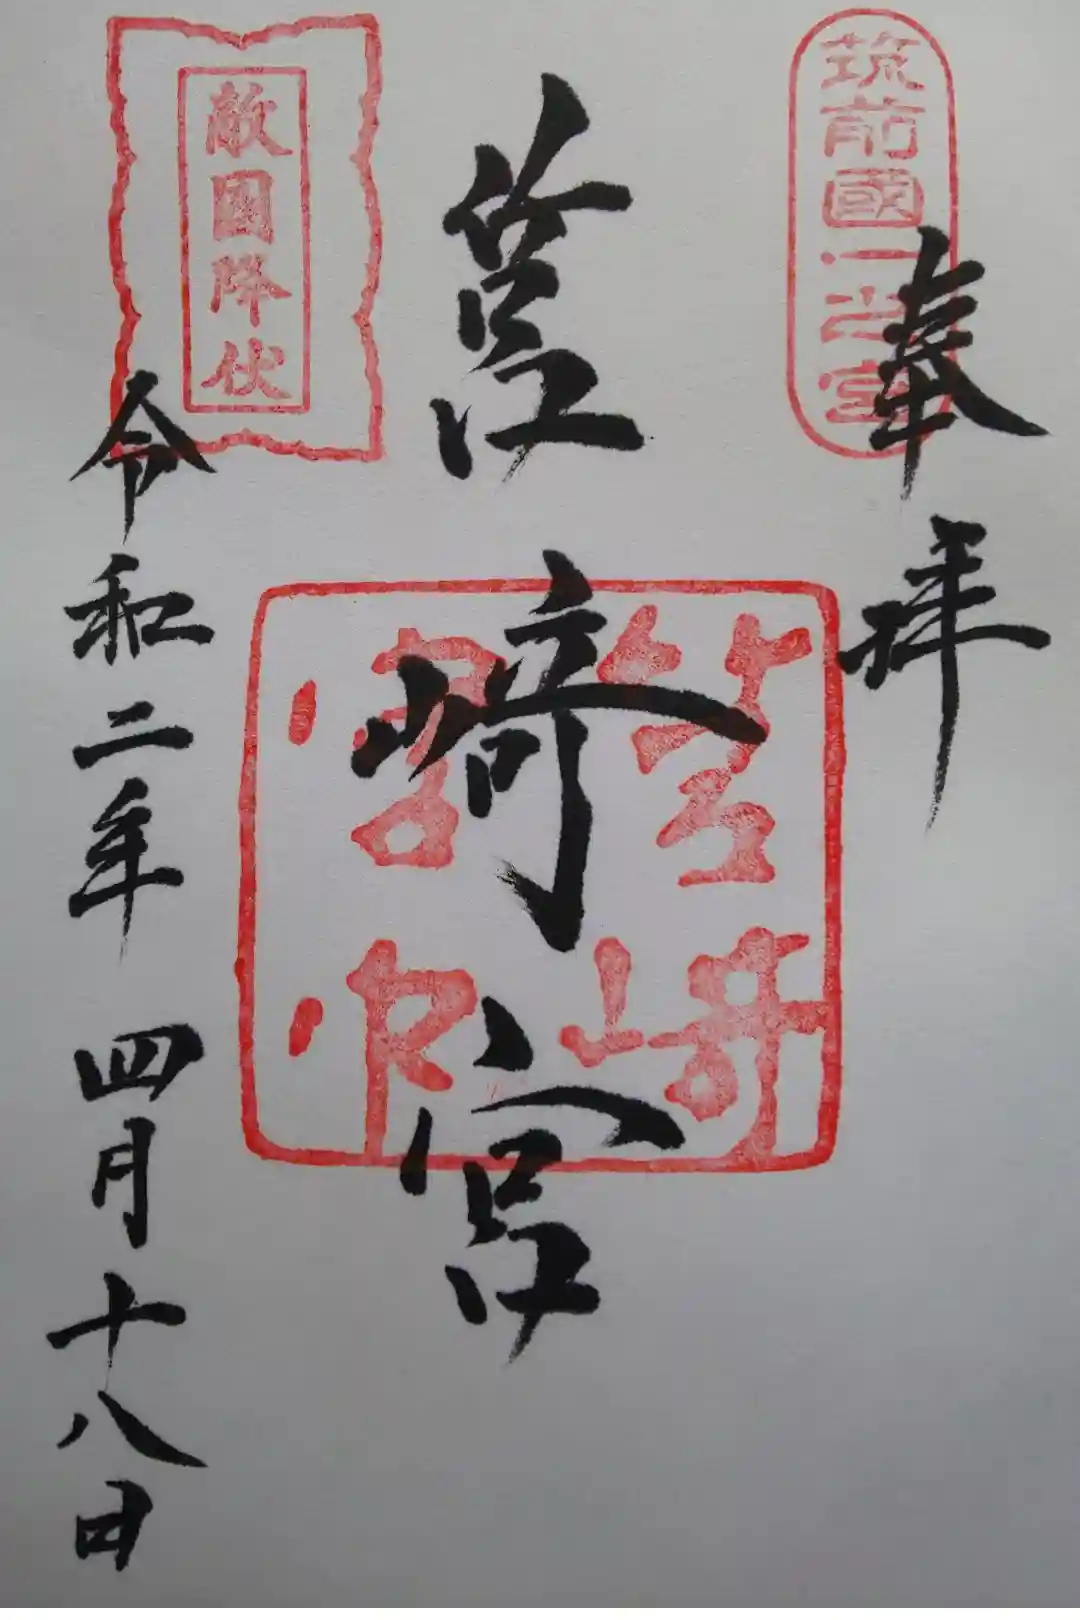 奉拝
筑前國一之宮
筥崎宮
筥崎宮印
敵國降伏
令和二年 四月十八日